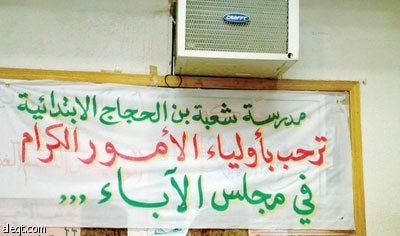 CRAFFT
مدرسة شعبة بن الحجاج الابتدائية
ترحب بأولياء الأمور الكرام
في مجلس الآباء ,,,
aleqt.com